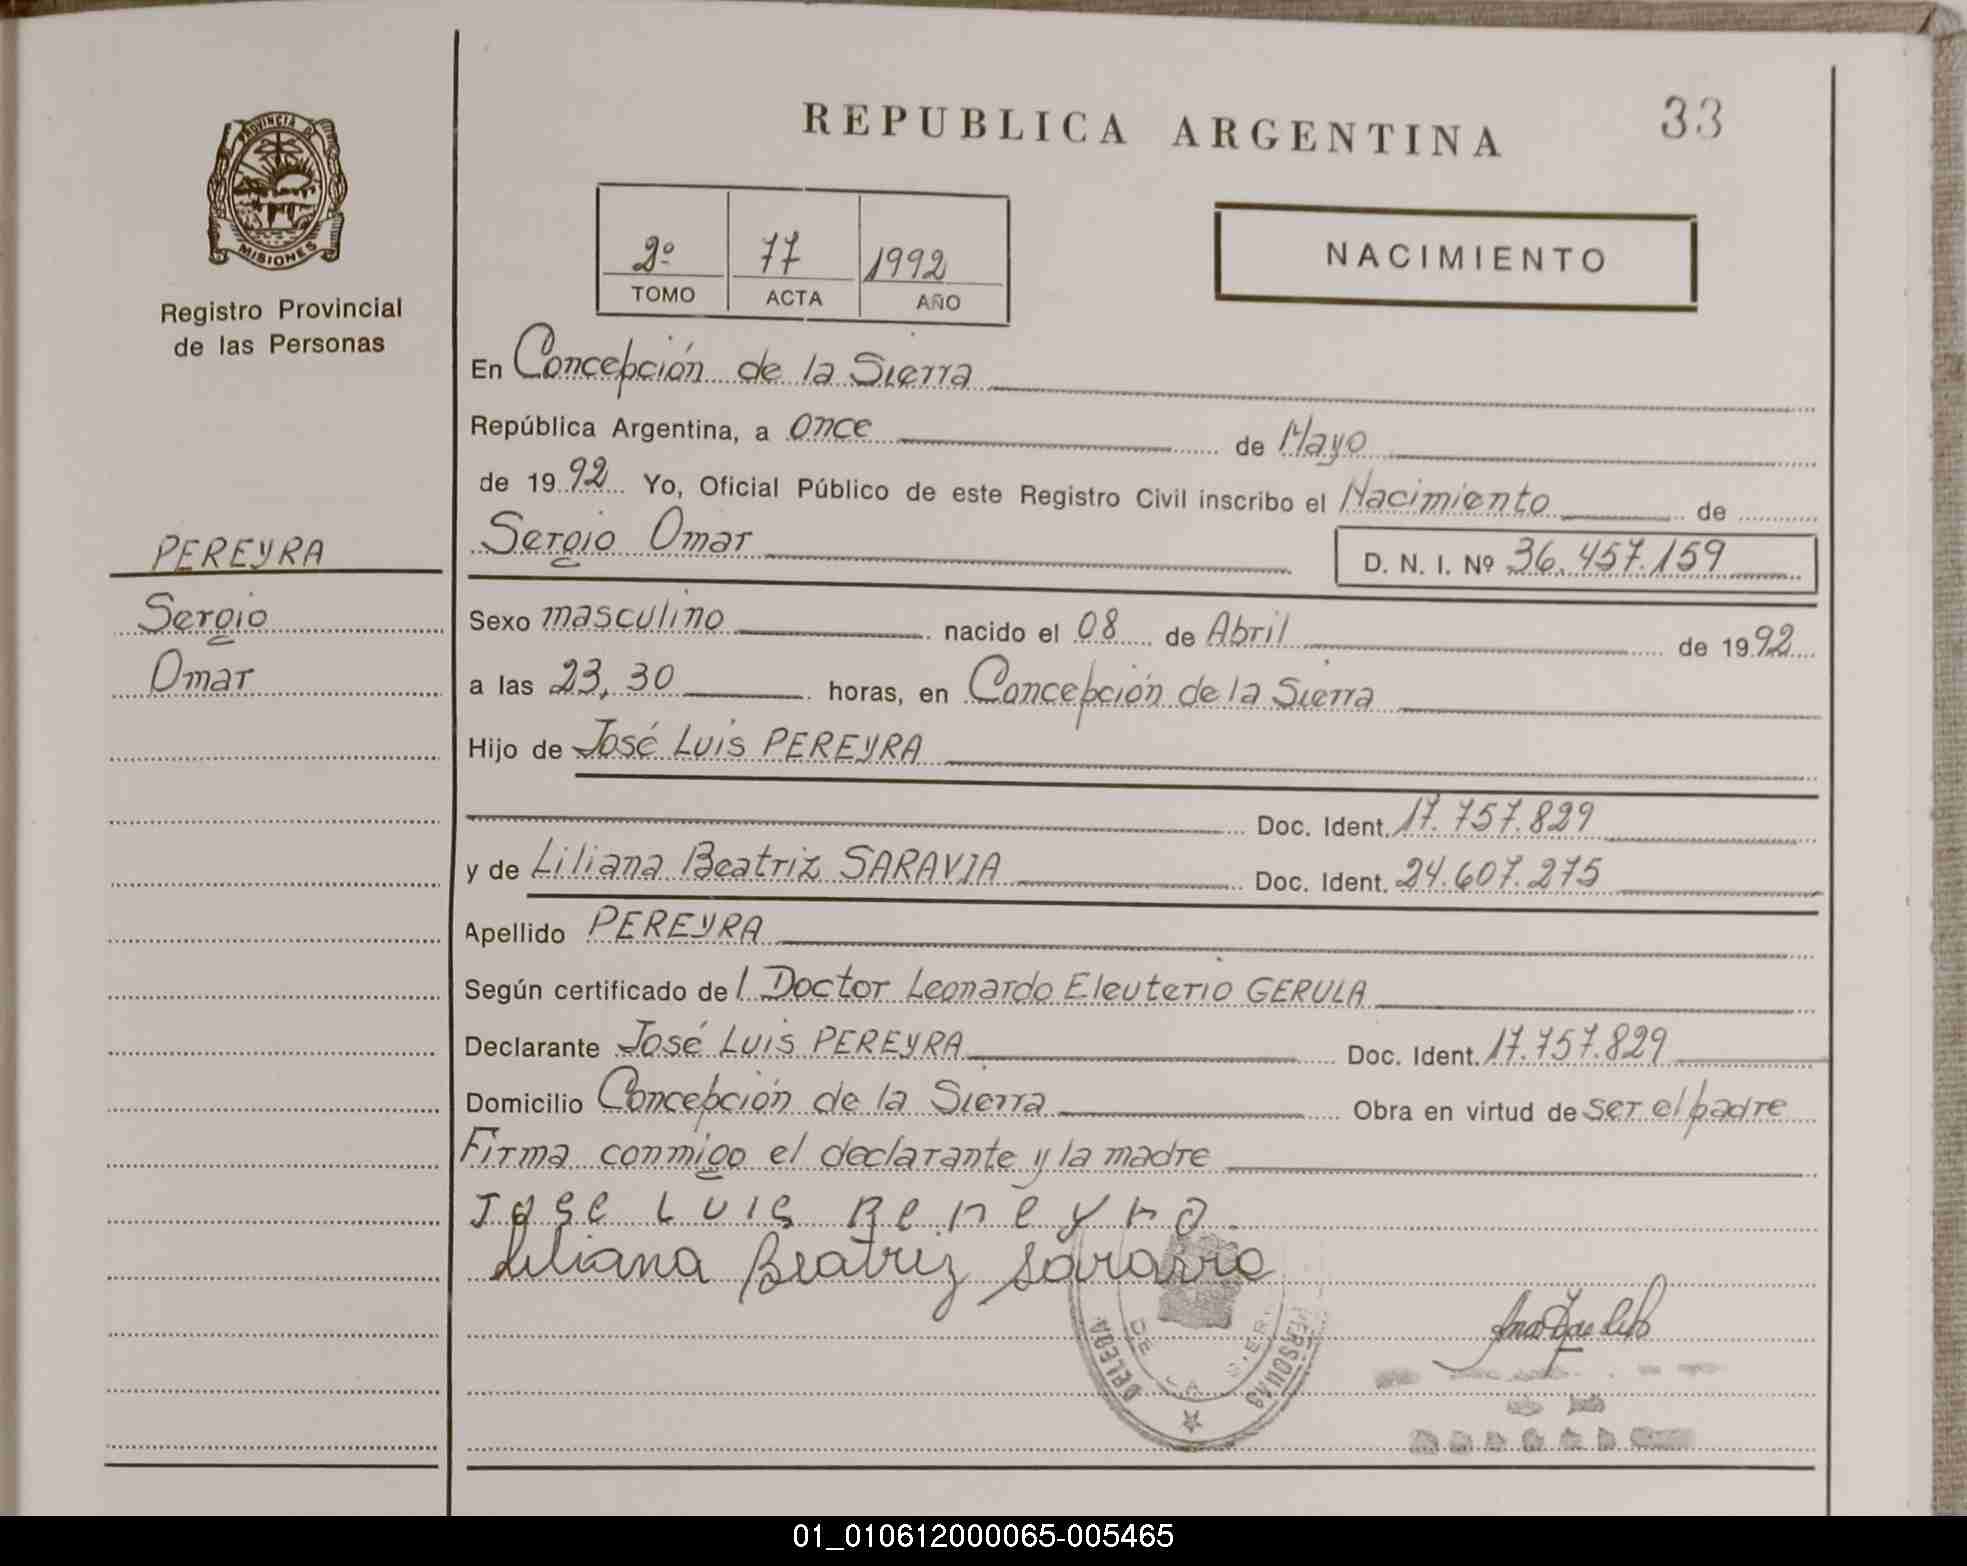 REPUBLICA ARGENTINA
33
PROVINCIA DE
MISIONES
Registro Provincial
de las Personas
2º 77 1992
TOMO ACTA AÑO
NACIMIENTO
En Concepción de la Sierra
República Argentina, a once de Mayo
de 1992 Yo, Oficial Público de este Registro Civil inscribo el Nacimiento de
PEREYRA
Sergio
Omar
Sergio Omar D. N. I. Nº 36.457.159
Sexo masculino nacido el 08 de Abril de 1992
a las 23,30 horas, en Concepción de la Sierra
Hijo de José Luis PEREYRA
Doc. Ident. 17.757.829
y de Liliana Beatriz SARAVIA Doc. Ident. 24.607.275
Apellido PEREYRA
Según certificado de l Doctor Leonardo Eleuterio GERULA
Declarante José Luis PEREYRA Doc. Ident. 17.757.829
Domicilio Concepción de la Sierra Obra en virtud de ser el padre
Firma conmigo el declarante y la madre
Jose Luis Pereyra
Liliana Beatriz Saravia
DELEGA
PERSONAS
DE LA SIER
01_010612000065-005465